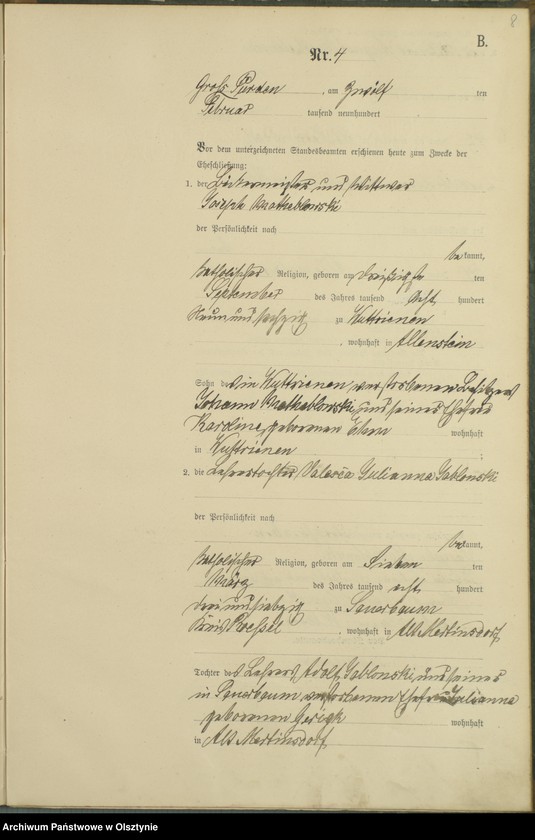 8
B.
Nr. 4
Groß Purden, am zwölf ten
Februar tausend neunhundert
Vor dem unterzeichneten Standesbeamten erschienen heute zum Zwecke der
Eheschließung:
1. der Bäckermeister und Wittwer
Joseph
der Persönlichkeit nach
bekannt,
katholischer Religion, geboren am dreißigsten ten
September des Jahres tausend acht hundert
neun und sechzig zu Wuttrienen
, wohnhaft in Allenstein
Sohn des in Wuttrienen verstorbenen Besitzers
Johann und seiner Ehefrau
Karoline, geborenen
wohnhaft
in Wuttrienen
2. die Lehrertochter Valeria Julianna Jablonski
der Persönlichkeit nach
bekannt,
katholischer Religion, geboren am Sieben ten
März des Jahres tausend acht hundert
drei und siebzig zu Sauerbaum
Kreis Roessel, wohnhaft in Alt Martinsdorf
Tochter des Lehrers Adolf Jablonski, und seiner
in Sauerbaum verstorbenen Ehefrau Julianna
geborenen Gerigk wohnhaft
in Alt Martinsdorf
Archiwum Państwowe w Olsztynie